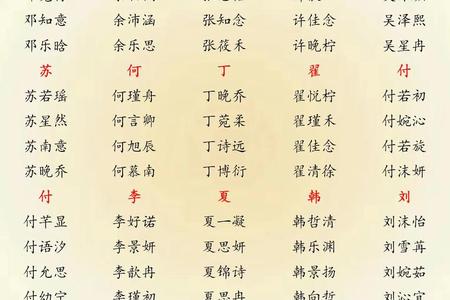 邓知意 余沛涵 张知念 许佳念 吴泽熙
邓乐晗 余乐思 张筱禾 许晚柠 吴星冉
苏 何 丁 翟 付
苏若瑶 何瑾舟 丁晚乔 翟悦柠 付若初
苏星然 何言卿 丁菀柔 翟瑾禾 付婉沁
苏南意 何旭辰 丁诗远 翟佳念 付若旋
苏晚乔 何慕南 丁博衍 翟清徐 付沫妍
付 李 夏 韩 刘
付芊显 李好诺 夏一凝 韩哲清 刘沫怡
付语汐 李景妍 夏思妍 韩乐渊 刘雪苒
付允思 李歆冉 夏锦诗 韩景扬 刘婉茹
付幼宁 李瑾初 夏思 韩向哲 刘沁宜